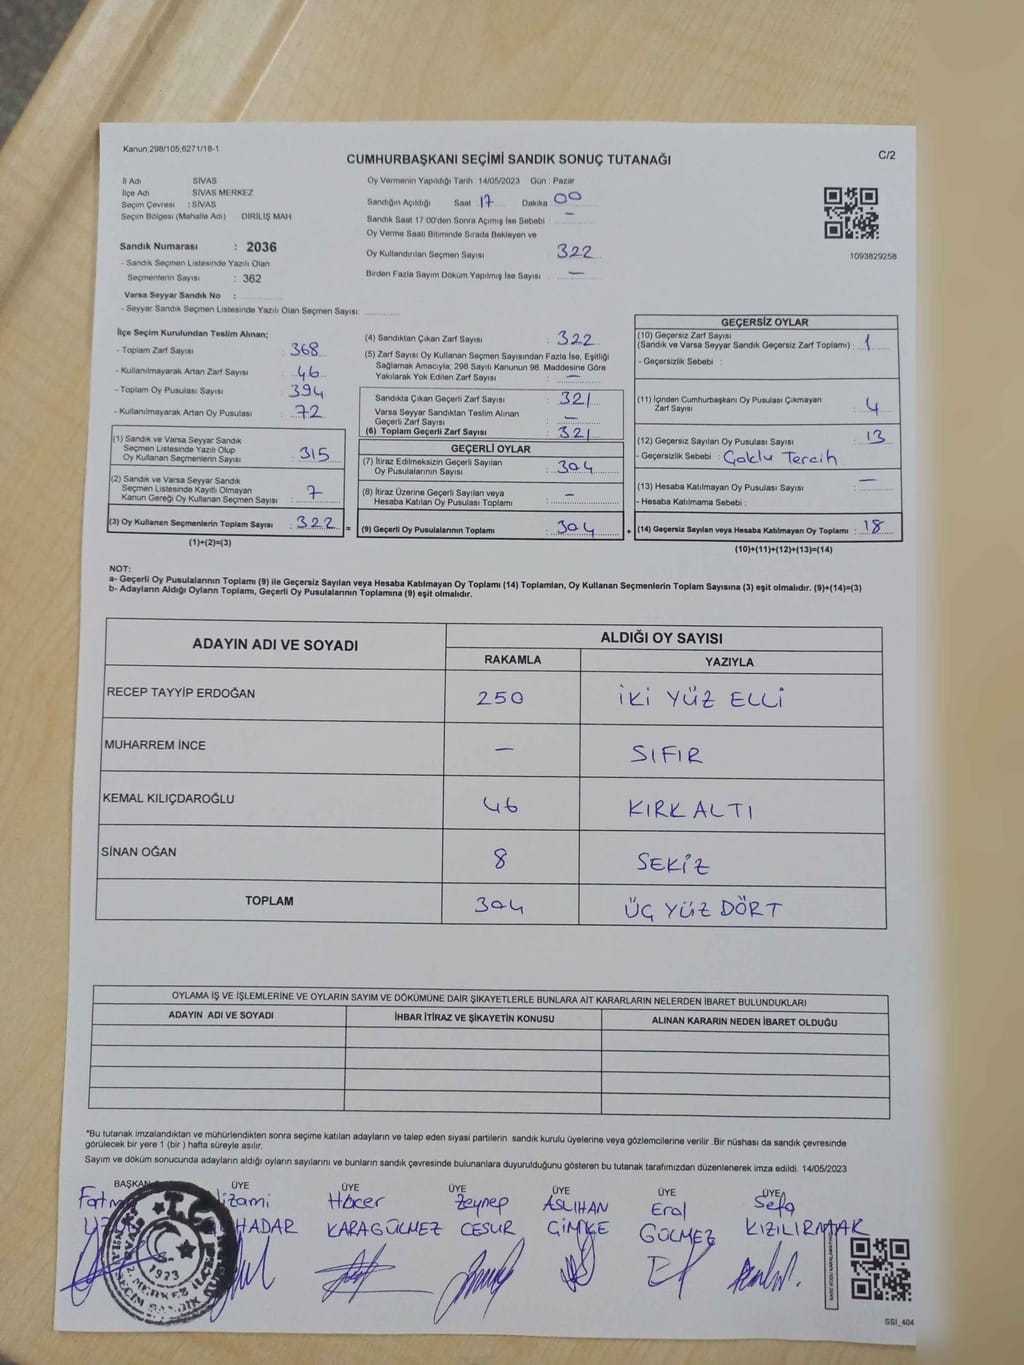 Kanun,298/105,6271/18-1
CUMHURBAŞKANI SEÇİMİ SANDIK SONUÇ TUTANAĞI
C/2
İl Adı SİVAS
İlçe Adı SİVAS MERKEZ
Seçim Çevresi : SİVAS
Seçim Bölgesi (Mahalle Adı) DİRİLİŞ MAH
Sandık Numarası : 2036
- Sandık Seçmen Listesinde Yazılı Olan
Seçmenlerin Sayısı : 362
Varsa Seyyar Sandık No :
- Seyyar Sandık Seçmen Listesinde Yazılı Olan Seçmen Sayısı:
Oy Vermenin Yapıldığı Tarih 14/05/2023 Gün : Pazar
Sandığın Açıldığı Saat 17 Dakika 00
Sandık Saat 17.00'den Sonra Açılmış İse Sebebi : —
Oy Verme Saati Bitiminde Sırada Bekleyen ve
Oy Kullandırılan Seçmen Sayısı : 322
Birden Fazla Sayım Döküm Yapılmış İse Sayısı : —
1093829258
İlçe Seçim Kurulundan Teslim Alınan;
- Toplam Zarf Sayısı : 368
- Kullanılmayarak Artan Zarf Sayısı : 46
- Toplam Oy Pusulası Sayısı : 394
- Kullanılmayarak Artan Oy Pusulası : 72
(1) Sandık ve Varsa Seyyar Sandık
Seçmen Listesinde Yazılı Olup
Oy Kullanan Seçmenlerin Sayısı : 315
(2) Sandık ve Varsa Seyyar Sandık
Seçmen Listesinde Kayıtlı Olmayan
Kanun Gereği Oy Kullanan Seçmen Sayısı : 7
(3) Oy Kullanan Seçmenlerin Toplam Sayısı : 322 =
(1)+(2)=(3)
(4) Sandıktan Çıkan Zarf Sayısı : 322
(5) Zarf Sayısı Oy Kullanan Seçmen Sayısından Fazla İse, Eşitliği
Sağlamak Amacıyla; 298 Sayılı Kanunun 98. Maddesine Göre
Yakılarak Yok Edilen Zarf Sayısı : —
Sandıkta Çıkan Geçerli Zarf Sayısı : 321
Varsa Seyyar Sandıktan Teslim Alınan
Geçerli Zarf Sayısı : —
(6) Toplam Geçerli Zarf Sayısı : 321
GEÇERLİ OYLAR
(7) İtiraz Edilmeksizin Geçerli Sayılan
Oy Pusulalarının Sayısı : 304
(8) İtiraz Üzerine Geçerli Sayılan veya
Hesaba Katılan Oy Pusulası Toplamı : —
(9) Geçerli Oy Pusulalarının Toplamı : 304 +
GEÇERSİZ OYLAR
(10) Geçersiz Zarf Sayısı
(Sandık ve Varsa Seyyar Sandık Geçersiz Zarf Toplamı) : 1
- Geçersizlik Sebebi :
(11) İçinden Cumhurbaşkanı Oy Pusulası Çıkmayan
Zarf Sayısı : 4
(12) Geçersiz Sayılan Oy Pusulası Sayısı : 13
- Geçersizlik Sebebi : Çoklu Tercih
(13) Hesaba Katılmayan Oy Pusulası Sayısı : —
- Hesaba Katılmama Sebebi :
(14) Geçersiz Sayılan veya Hesaba Katılmayan Oy Toplamı : 18
(10)+(11)+(12)+(13)=(14)
NOT:
a- Geçerli Oy Pusulalarının Toplamı (9) ile Geçersiz Sayılan veya Hesaba Katılmayan Oy Toplamı (14) Toplamları, Oy Kullanan Seçmenlerin Toplam Sayısına (3) eşit olmalıdır. (9)+(14)=(3)
b- Adayların Aldığı Oyların Toplamı, Geçerli Oy Pusulalarının Toplamına (9) eşit olmalıdır.
ADAYIN ADI VE SOYADI ALDIĞI OY SAYISI
RAKAMLA YAZIYLA
RECEP TAYYİP ERDOĞAN 250 İKİ YÜZ ELLİ
MUHARREM İNCE — SIFIR
KEMAL KILIÇDAROĞLU 46 KIRK ALTI
SİNAN OĞAN 8 SEKİZ
TOPLAM 304 ÜÇ YÜZ DÖRT
OYLAMA İŞ VE İŞLEMLERİNE VE OYLARIN SAYIM VE DÖKÜMÜNE DAİR ŞİKAYETLERLE BUNLARA AİT KARARLARIN NELERDEN İBARET BULUNDUKLARI
ADAYIN ADI VE SOYADI İHBAR İTİRAZ VE ŞİKAYETİN KONUSU ALINAN KARARIN NEDEN İBARET OLDUĞU
*Bu tutanak imzalandıktan ve mühürlendikten sonra seçime katılan adayların ve talep eden siyasi partilerin sandık kurulu üyelerine veya gözlemcilerine verilir .Bir nüshası da sandık çevresinde
görülecek bir yere 1 (bir ) hafta süreyle asılır.
Sayım ve döküm sonucunda adayların aldığı oyların sayılarını ve bunların sandık çevresinde bulunanlara duyurulduğunu gösteren bu tutanak tarafımızdan düzenlenerek imza edildi. 14/05/2023
BAŞKAN ÜYE ÜYE ÜYE ÜYE ÜYE ÜYE
Hacer Zeynep ASLIHAN Eral Sefa
KARAGÜLMEZ CESUR GÜLMEZ KIZILIRMAK
T.C.
1923
SSİ_404